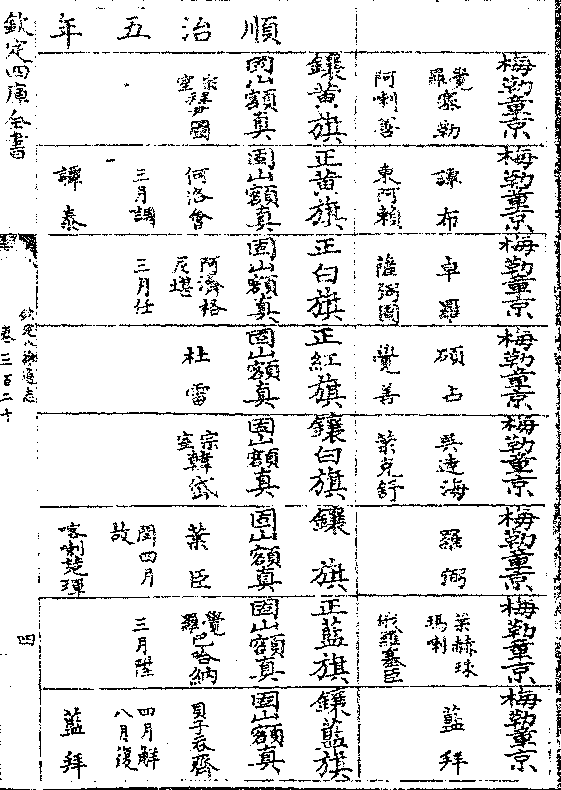 梅勒章京 梅勒章京 梅勒章京 梅勒章京 梅勒章京 梅勒章京 梅勒章京 梅勒章京
覺羅塞勒 譚布 卓羅 碩占 吳達海 羅弼 葉赫珠瑪喇 藍拜
阿喇善 東阿賴 覺善 葉克舒 俄羅塞臣
順治五年
鑲黃旗 正黃旗 正白旗 正紅旗 鑲白旗 鑲 旗 正藍旗 鑲藍旗
固山額真 固山額真 固山額真 固山額真 固山額真 固山額真 固山額真 固山額真
宗室拜尹圖 何洛會 阿濟格尼堪 杜雷 宗室韓岱 葉臣 覺羅巴哈納 貝子吞齊
三月調 三月任 閏四月故 三月陞 四月解八月復
譚泰 喀喇楚琿 藍拜
欽定四庫全書
欽定八旗通志
卷三百二十
四